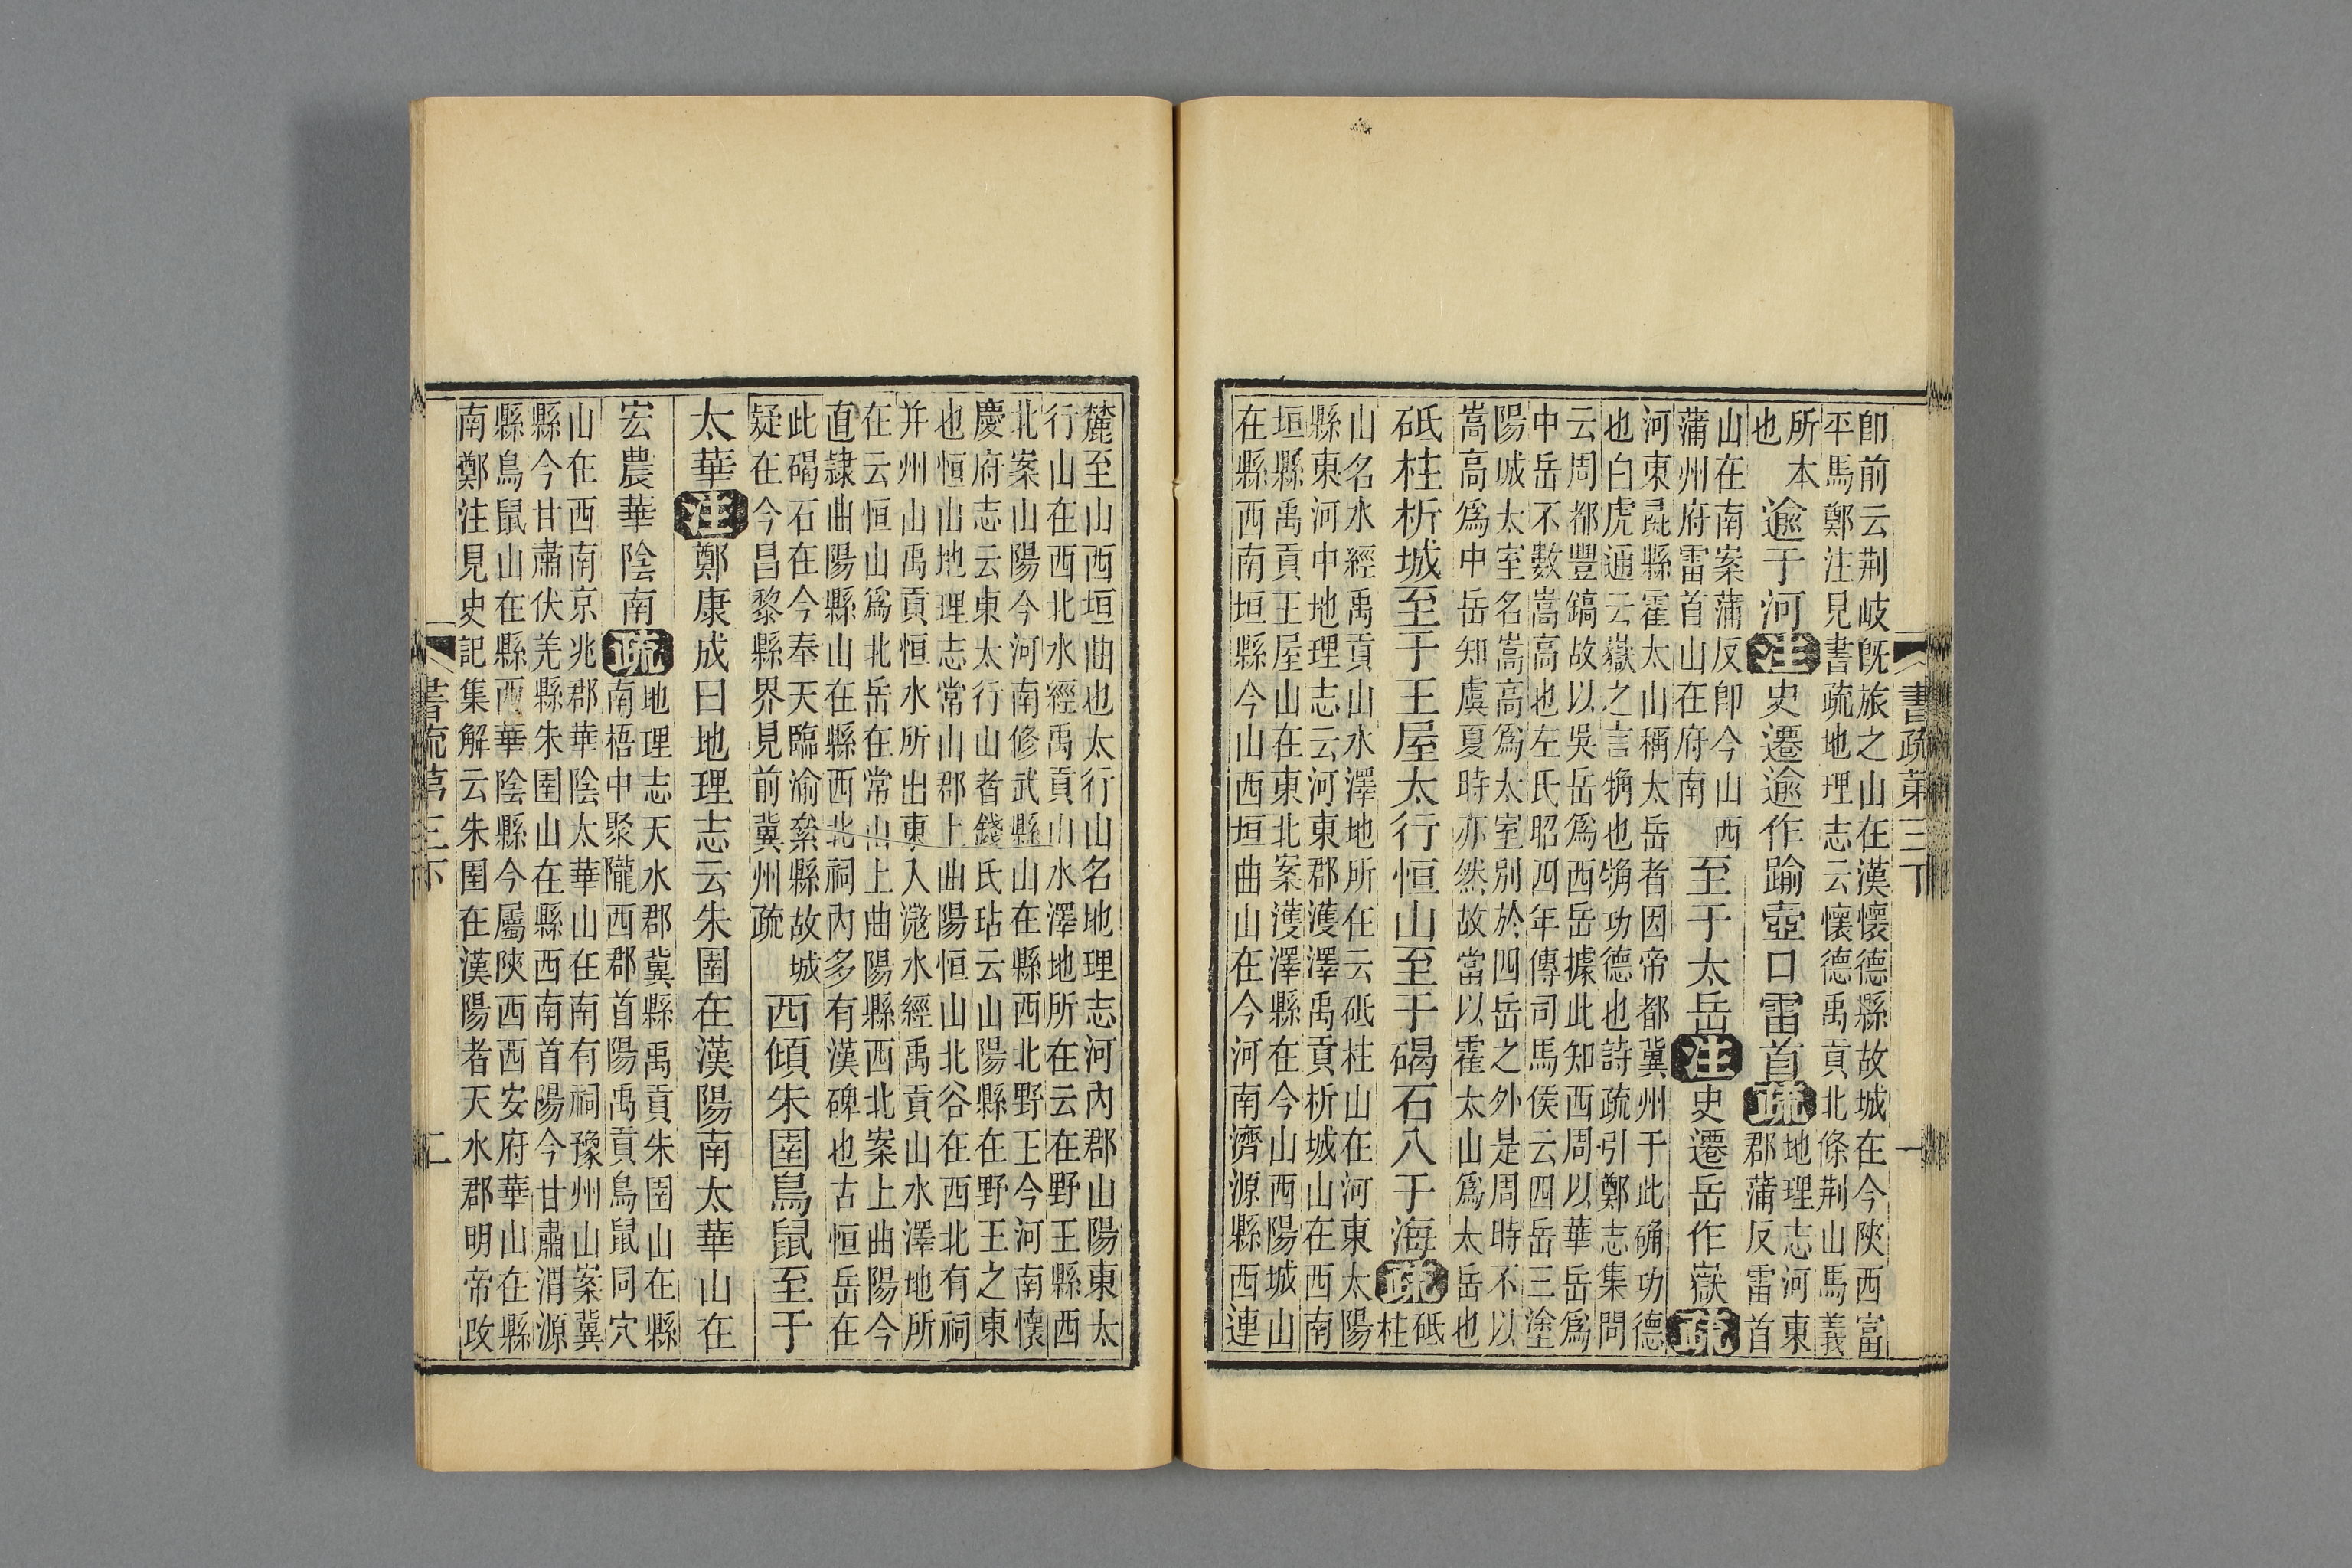 書疏第三下 一
卽前云荊岐旣旅之山在漢懷德縣故城在今陝西富
平馬鄭注見書疏地理志云懷德禹貢北條荊山馬義
所本
也
逾于河注史遷逾作踰壺口雷首疏
地理志河東
郡蒲反雷首
山在南案蒲反卽今山西
蒲州府雷首山在府南
至于太岳注史遷岳作嶽疏
河東彘縣霍太山稱太岳者因帝都冀州于此确功德
也白虎通云嶽之言捔也捔功德也詩疏引鄭志集問
云周都豐鎬故以吳岳爲西岳據此知西周以華岳爲
中岳不數嵩高也左氏昭四年傳司馬侯云四岳三塗
陽城太室名嵩高爲太室別於四岳之外是周時不以
嵩高爲中岳知虞夏時亦然故當以霍太山爲太岳也
砥柱析城至于王屋太行恒山至于碣石入于海疏
砥
柱
山名水經禹貢山水澤地所在云砥柱山在河東太陽
縣東河中地理志云河東郡濩澤禹貢析城山在西南
垣縣禹貢王屋山在東北案濩澤縣在今山西陽城山
在縣西南垣縣今山西垣曲山在今河南濟源縣西連
麓至山西垣曲也太行山名地理志河內郡山陽東太
行山在西北水經禹貢山水澤地所在云在野王縣西
北案山陽今河南修武縣山在縣西北野王今河南懷
慶府志云東太行山者錢氏坫云山陽縣在野王之東
也恒山地理志常山郡上曲陽恒山北谷在西北有祠
并州山禹貢恒水所出東入滱水經禹貢山水澤地所
在云恒山爲北岳在常山上曲陽縣西北案上曲陽今
直隸曲陽縣山在縣西北祠內多有漢碑也古恒岳在
此碣石在今奉天臨渝絫縣故城
疑在今昌黎縣界見前冀州疏
西傾朱圉鳥鼠至于
太華注鄭康成曰地理志云朱圉在漢陽南太華山在
宏農華陰南疏
地理志天水郡冀縣禹貢朱圉山在縣
南梧中聚隴西郡首陽禹貢鳥鼠同穴
山在西南京兆郡華陰太華山在南有祠豫州山案冀
縣今甘肅伏羌縣朱圉山在縣西南首陽今甘肅渭源
縣鳥鼠山在縣西華陰縣今屬陝西西安府華山在縣
南鄭注見史記集解云朱圉在漢陽者天水郡明帝改
書疏第三下 二